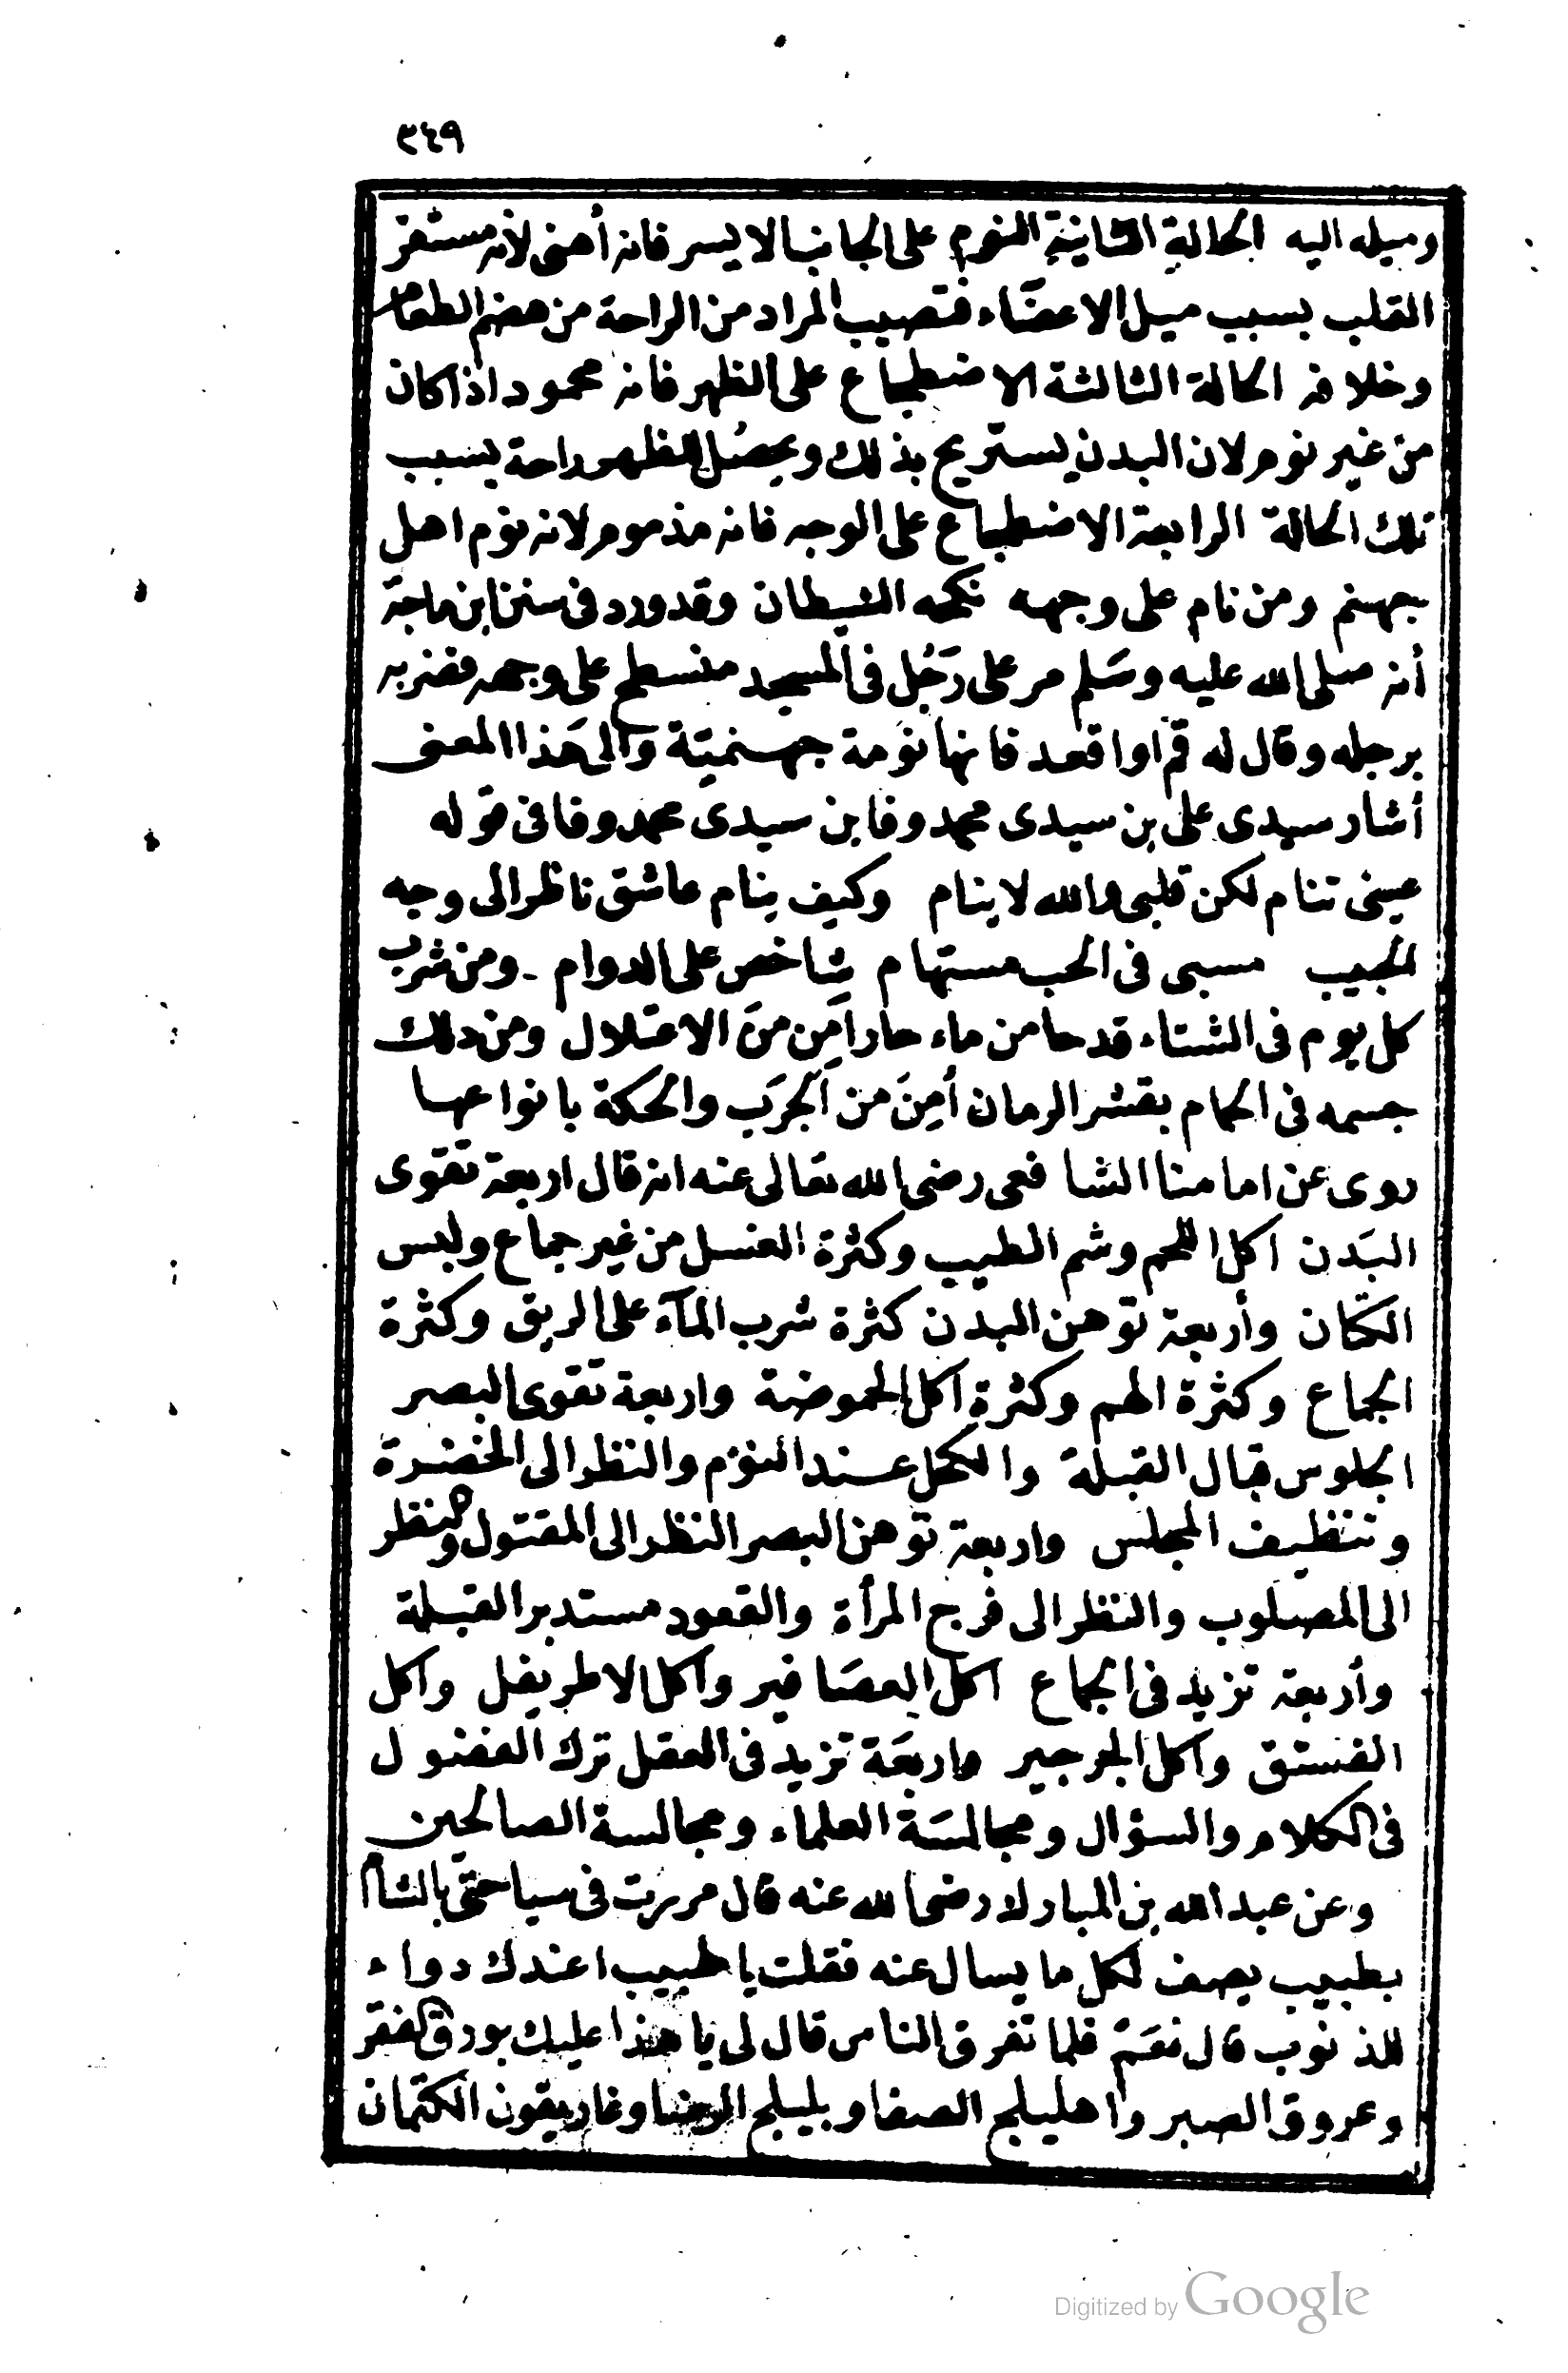 ٣٤٩
وميله اليه الحالة الثانية النوم على الجانب الايسر فانه أهنى لأنه مستقر
القلب بسبب ميل الاعضاء فتصيب المراد من الراحة من هضم الطعام
وخلافه الحالة الثالثة الاضطجاع على الظهر فانه محمود اذا كان
من غير نوم لان البدن يستريح بذلك ويحصُل للظهر راحة بسبب
تلك الحالة الرابعة الاضطجاع على الوجه فانه مذموم لانه نوم اهل
جهنم ومن نام على وجهه نكحه الشيطان وقد ورد فى سنن ابن ماجة
أنه صلى الله عليه وسَلم مر على رَجُل فى المسجد منسطح على وجهه فضربه
برجله وقال له قم او اقعد فانها نَومة جهنميّة والى هَذا المعنى
أشار سيدى على بن سيدى محمد وفا بن سيدى محمد وفا فى قوله
عينى تنام لكن قلبى والله لا ينام وكيف ينام عاشق ناظر الى وجه
الحبيب مسبى فى الحب مستهام شاخص على الدوام - ومن شرب
كل يوم فى الشتاء قدحا من ماء حار أمِن منَ الاعتلال ومن دلك
جسمه فى الحمام بقشر الرمان أمِنَ من الجَرَب والحكة بانواعها
روى عن امامنا الشافعى رضى الله تعالى عنه انه قال اربعة تقوى
البَدن اكل اللحم وشم الطيب وكثرة الغسل من غير جماع ولبس
الكتّان وأربعة توهن البدن كثرة شرب المآء على الريق وكثرة
الجماع وكثرة الهم وكثرة اكل الحموضة واربعة تقوى البصر
الجلوس قبال القبلة والكحل عند النوم والنظر الى الخضرة
وتنظيف المجلس واربعة توهن البصر النظر الى المقتول والنظر
الى المصلوب والنظر الى فرج المرأة والقعود مستدبر القبلة
وأربعة تزيد فى الجماع اكل العصَافير واكل الاطريفل واكل
الفستق واكل الجرجير واربعَة تزيد فى العقل ترك الفضول
فى الكلام والسؤال ومجالسَة العلماء ومجالسة الصالحين
وعن عبد الله بن المبارك رضى الله عنه قال مررت فى سياحتى بالشام
بطبيب يصف لكل ما يسال عنه فقلت يا طبيب اعندك دواء
للذنوب قال نعَمْ فلما تفرق الناس قال لى يا هذا عليك بورق الفقر
وعروق الصبر واهليلج الصفا وبليلج الرضا وغاريقون الكتمان
Digitized by Google